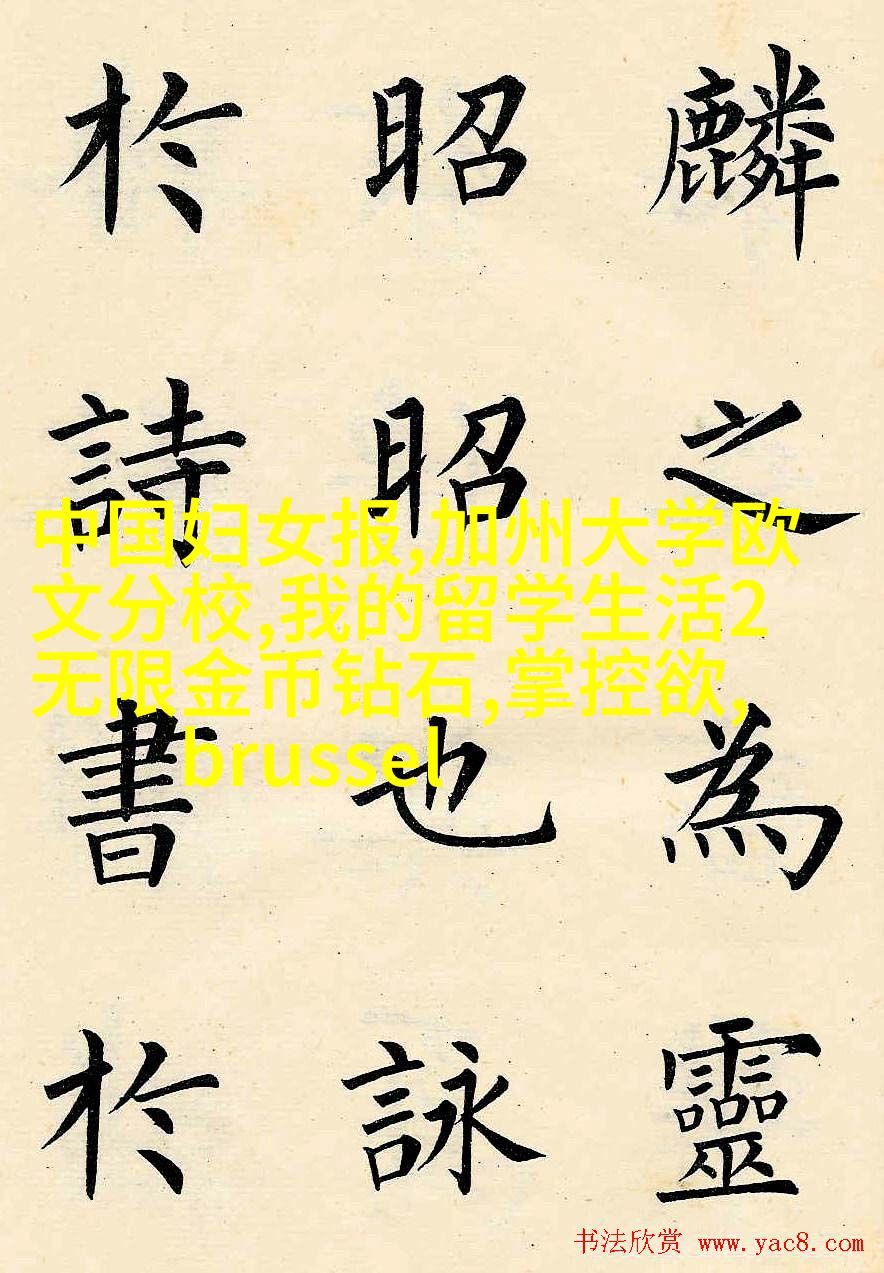 麟之為靈
昭昭也詠
於詩書於
中国妇女报,加州大学欧
文分校,我的留学生活2
无限金币钻石,掌控欲,
brussel
书法欣赏 www.yac8.com